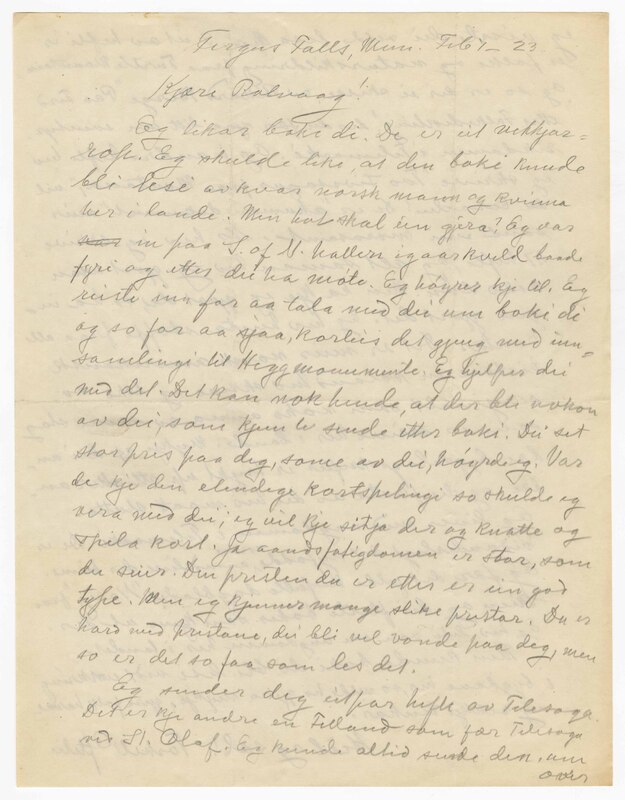 Fergus Falls, Minn. Feb 7 – 23
Kjære Rolvaag!
Eg likar boki di. De er eit verkjar-
rop. Eg skulde like, at den boki kunde
bli lesi av kvar norsk mann og kvinna
her i lande. Men kot skal ein gjera? Eg var
in paa S. of N. hallen igaarkveld baade
fyri og etter dei ha møte. Eg høyrer kje til. Eg
reiste inn for aa tala med dei um boki di
og so for aa sjaa, korleis det gjeng med inn-
samlingi til Heggmonumente. Eg hjelper dei
med det. Det kan nok hende, at der bli nokon
av dei, som kjem te sende etter boki. Dei set
stor pris paa deg, some av dei, høyrde eg. Var
de kje den elendige kortspelingi so skulde eg
vera med dei; eg vil kje sitja der og knatte og
spila kort. Ja aandsfatigdomen er stor, som
du seier. Den presten du er etter er ein god
type. Men eg kjenner mange slike prestar. Du er
hard med prestane, dei bli vel vonde paa deg, men
so er det so faa som les det.
Eg sender deg eit par hefte av Telesoga.
Det er kje andre en Tilland som fær Telesoga
ved St. Olaf. Eg kunde altid sende den, um
over